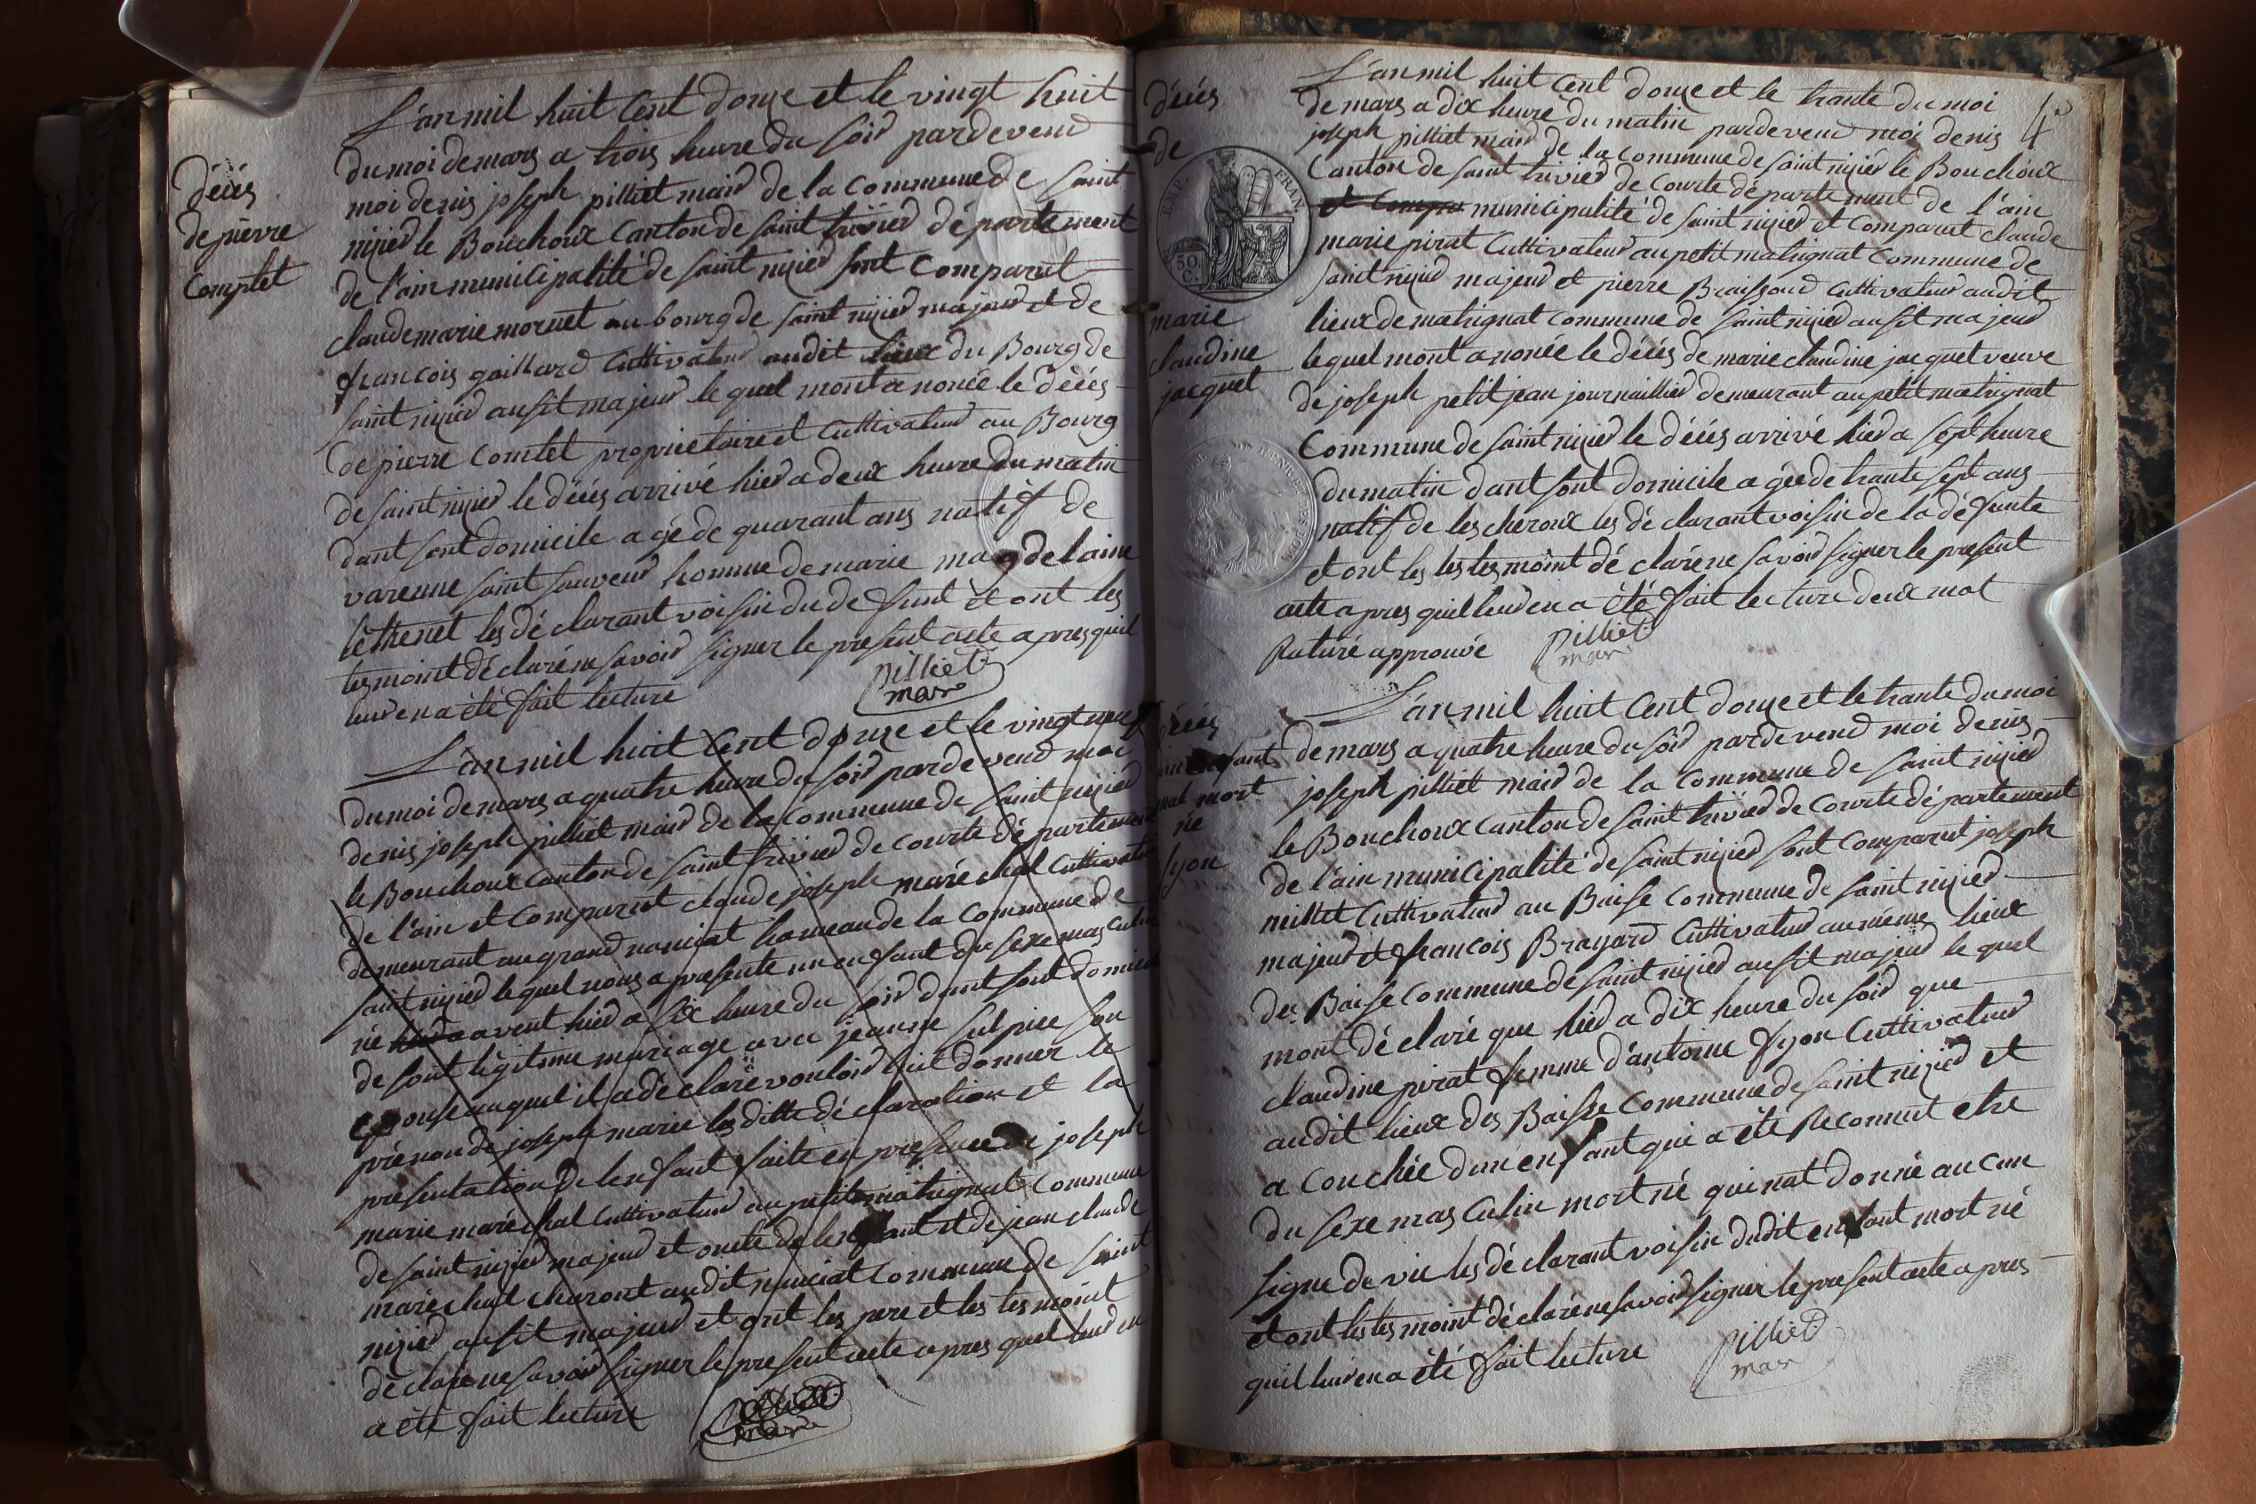 décés
de pierre
Comptet
L'an mil huit Cent douze et le vingt huit
du moi de mars a trois heure du soir pardevend
moi denis joseph pilliet mair de la Commune de saint
nizier le Bouchoux Canton de saint trivier département
de l'ain municipalité de saint nizier sont Comparut
claude marie moruet au bourg de saint nizier majeur et de
francois gaillard Cuttivateur audit lieux du Bourg de
saint nizier ausit majeur le quel mont a nonée le décés
de pierre Comtet propriétaire et Cuttivateur au Bourg
de saint nizier le décés arrivé hier a deux heure du matin
dant sont domicile agé de quarant ans natif de
varenne saint sauveur homme de marie magdelaine
lethenet les dé clarant voisin du defunt et ont les
tesmoint déclaré ne savoir signer le present acte apres quil
leur en a été fait lecture
pilliet
mair
L'an mil huit Cent douze et le vingt neuf
du moi de mars a quatre heure du soir pardevend moi
denis joseph pilliet mair de la Commune de saint nizier
le Bouchoux Canton de saint trivier de Courte département
de l'ain et Comparut claude joseph maréchal Cuttivateur
demeurant au grand nanciat hameau de la Commune de
saint nizier le quel nous a presenté un enfant du sexe masculin
né avent hier a six heure du soir dant sont domicile
de sont légitime mariage avec jeanne sulpice son
epouse auquel il a déclaré vouloir luit donner le
prénon de joseph marie les ditte dé claration et la
présentation de lenfant faite en presence de joseph
marie maréchal Cuttivateur au petit matrignat Commune
de saint nizier majeur et oncle de lenfant et de jean claude
maréchal charont audit nanciat Commune de saint
nizier ausit majeur et ont les pere et les tesmoint
déclaré ne savoir signer le present acte apres quel leur en
a été fait lecture
pilliet
mair
décés
de
marie
claudine
jacquet
EMP. FRAN.
50
C.
4
L'an mil huit Cent douze et le trante du moi
de mars a dix heure du matin pardevend moi denis
joseph pilliet mair de la Commune de saint nizier le Bouchoux
Canton de saint trivier de Courte département de l'ain
et Compru municipalité de saint nizier et Comparut claude
marie pirat Cuttivateur au petit matrignat Commune de
saint nizier majeur et pierre Braissoud Cuttivateur audit
lieux de matrignat Commune de saint nizier ausit majeur
lequel mont a nonée le décés de marie claudine jacquet veuve
de joseph petitjean journaillier demeurant au petit matrignat
Commune de saint nizier le décés arrivé hier a sept heure
du matin dant sont domicile agée de trante sept ans
natif de lescheroux les dé clarant voisin de la défunte
et ont les tes tesmoint dé claré ne savoir signer le present
acte apres quil leur en a été fait lecture deux mot
Raturé approuvé
pilliet
mair
décés
un enfant
mal mort
né
fyon
L'an mil huit Cent douze et le trante du moi
de mars a quatre heure du soir pardevend moi denis
joseph pilliet mair de la Commune de saint nizier
le Bouchoux Canton de saint trivier de Courte département
de l'ain municipalité de saint nizier sont Comparut joseph
millet Cuttivateur au Baise Commune de saint nizier
majeur et francois Brayard Cuttivateur au même lieux
des Baise Commune de saint nizier ausit majeur le quel
mont déclaré que hier a dix heure du soir que
claudine pirat femme d'antoine fyon Cuttivateur
audit lieux des Baisse Commune de saint nizier et
a couchée dun enfant qui a été Reconnut etre
du sexe masculin mort né qui nat donné aucun
signe de vie les déclarant voisin dudit enfant mort né
et ont les tesmoint déclaré ne savoir signer le present acte apres
quil leur en a été fait lecture
pilliet
mair